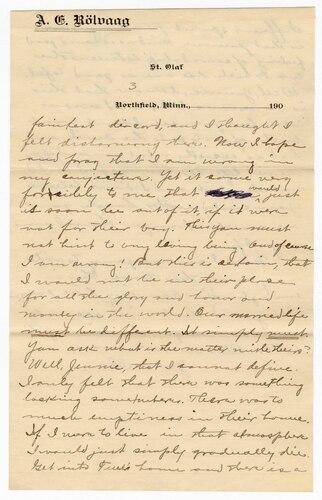 A. E. Rölvaag
St. Olaf
3
Northfield, Minn., 190
faintest discord, and I thought I
felt disharmony there. Now I hope
and pray that I am wrong in
my conjecture. Yet it came very
forcibly to me that would just
as soon be out of it, if it were
not for their boy. This you must
not hint to any living being. And of course
I am wrong! But this is certain, that
I would not be in their place
for all the glory and honor and
money in the world. Our married life
must be different. It simply must.
You ask what is the matter with theirs?
Well, Jennie, that I cannot define.
I only felt that there was something
lacking somewhere. There was to
much emptiness in their home.
If I were to live in that atmosphere
I would just simply gradually die.
Get into home and there is a